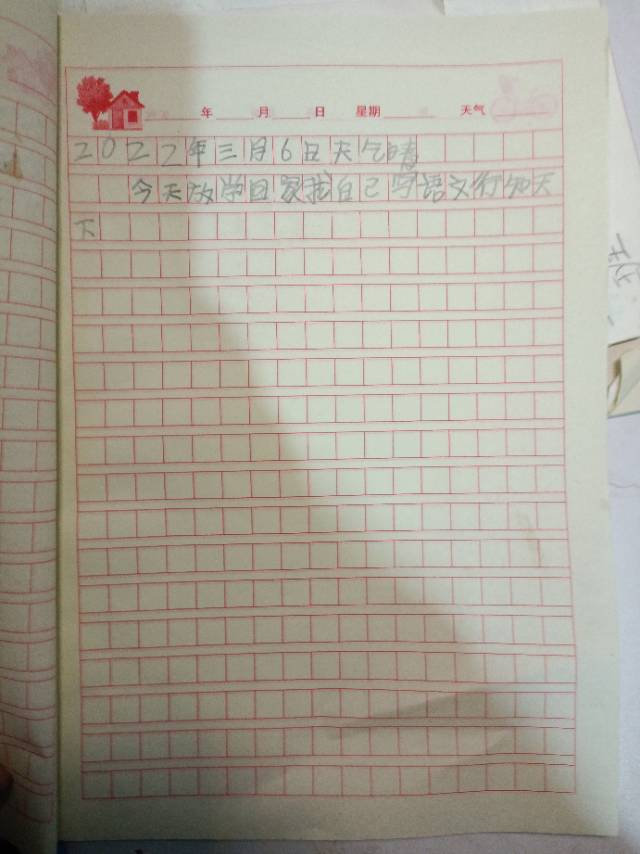 年 月 日 星期 天气
2022年三月6日天气晴
今天放学回家我自己写语文行知天
下